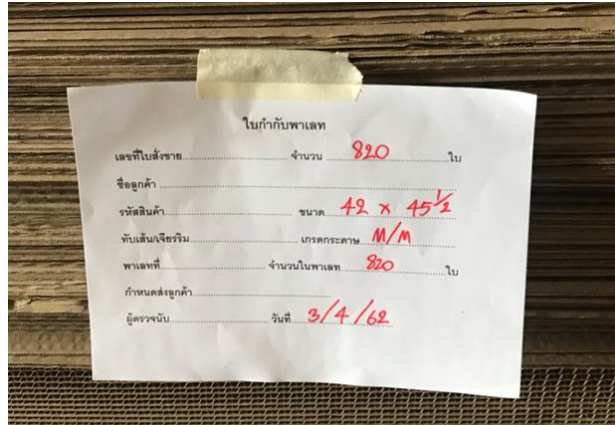 ใบกำกับพาเลท
เลขที่ใบสั่งขาย.......................... จำนวน 820 ใบ
ชื่อลูกค้า
รหัสสินค้า.......................... ขนาด 42 x 45 1/2
ทับเส้น/เจียรริม.......................... เกรดกระดาษ M/M
พาเลทที่.......................... จำนวนในพาเลท 820 ใบ
กำหนดส่งลูกค้า
ผู้ตรวจนับ.......................... วันที่ 3/4/62